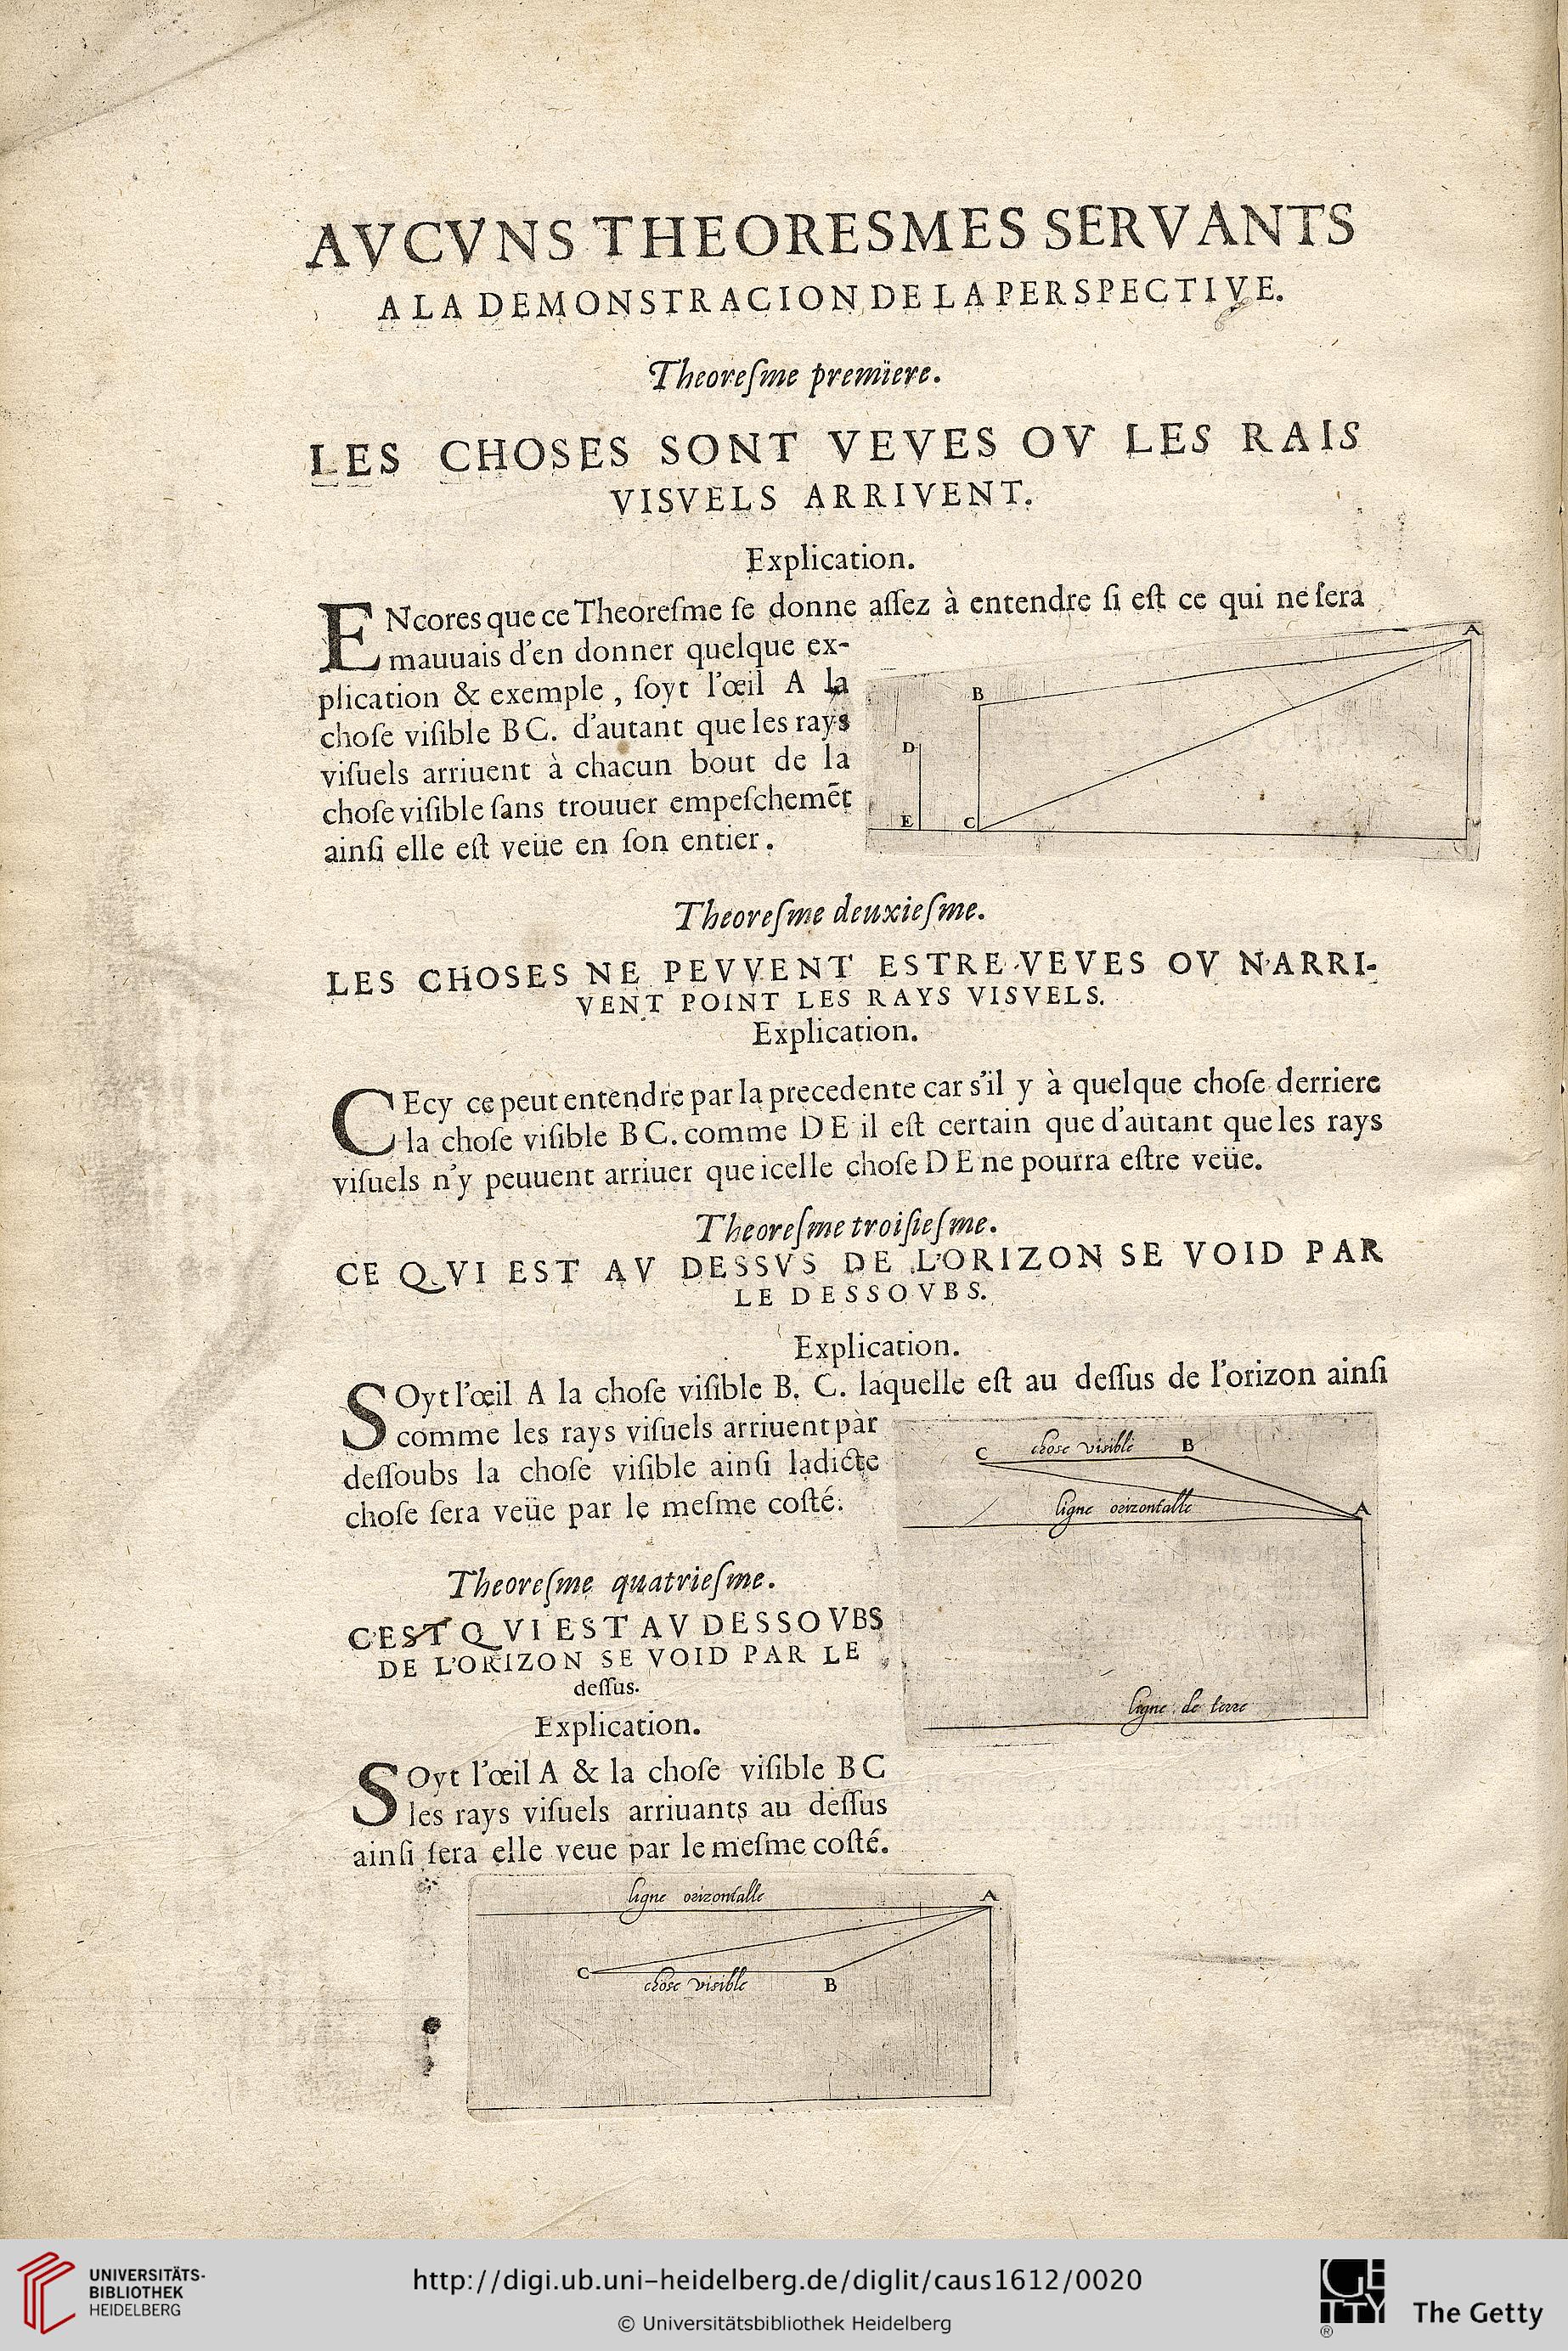 AVCVNS THEORESMES SERVANTS
A LA DEMONSTRACION DE LA PERSPECTIVE.
Theoreſme premiere.
LES CHOSES SONT VEVES OV LES RAIS
VISVELS ARRIVENT.
Explication.
ENcores que ce Theoreſme ſe donne aſſez à entendre ſi eſt ce qui ne ſera
mauuais d'en donner quelque ex-
plication & exemple, ſoyt l'œil A la
choſe viſible BC. d'autant que les rays
viſuels arriuent à chacun bout de la
choſe viſible ſans trouuer empeſchemẽt
ainſi elle eſt veüe en ſon entier.
A
B
D
E
C
Theoreſme deuxieſme.
LES CHOSES NE PEVVENT ESTRE VEVES OV N'ARRI-
VENT POINT LES RAYS VISVELS.
Explication.
CEcy ce peut entendre par la precedente car s'il y à quelque choſe derriere
la choſe viſible BC. comme DE il eſt certain que d'autant que les rays
viſuels n'y peuuent arriuer que icelle choſe DE ne pourra eſtre veüe.
Theoreſme troiſieſme.
CE QVI EST AV DESSVS DE L'ORIZON SE VOID PAR
LE DESSOVBS.
Explication.
SOyt l'œil A la choſe viſible B. C. laquelle eſt au deſſus de l'orizon ainſi
comme les rays viſuels arriuent par
deſſoubs la choſe viſible ainſi ladicte
choſe ſera veüe par le meſme coſté.
C chose visible B
ligne orizontalle A
ligne de terre
Theoreſme quatrieſme.
C'EST QVI EST AV DESSOVBS
DE L'ORIZON SE VOID PAR LE
deſſus.
Explication.
SOyt l'œil A & la choſe viſible BC
les rays viſuels arriuants au deſſus
ainſi ſera elle veue par le meſme coſté.
ligne orizontalle A
C
chose visible B
UNIVERSITÄTS-
BIBLIOTHEK
HEIDELBERG
http://digi.ub.uni-heidelberg.de/diglit/caus1612/0020
© Universitätsbibliothek Heidelberg
GETTY
®
The Getty